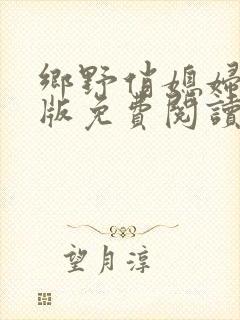 鄉野俏媳婦
版免費閱讀
望月淳